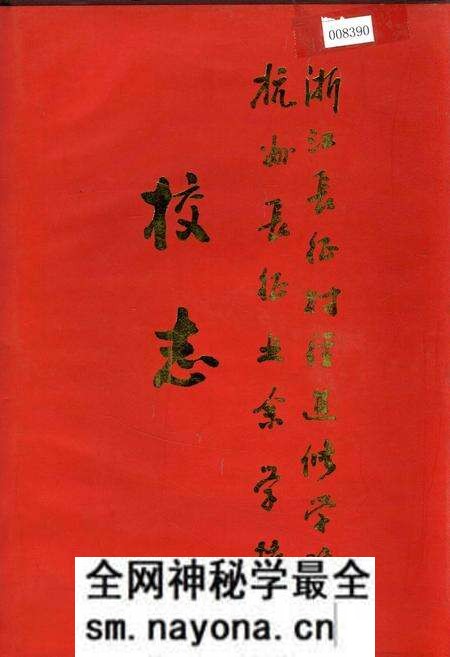 008390
浙江長征财经進修学
杭州長征业余学
校志
全网神秘学最全
sm.nayona.cn